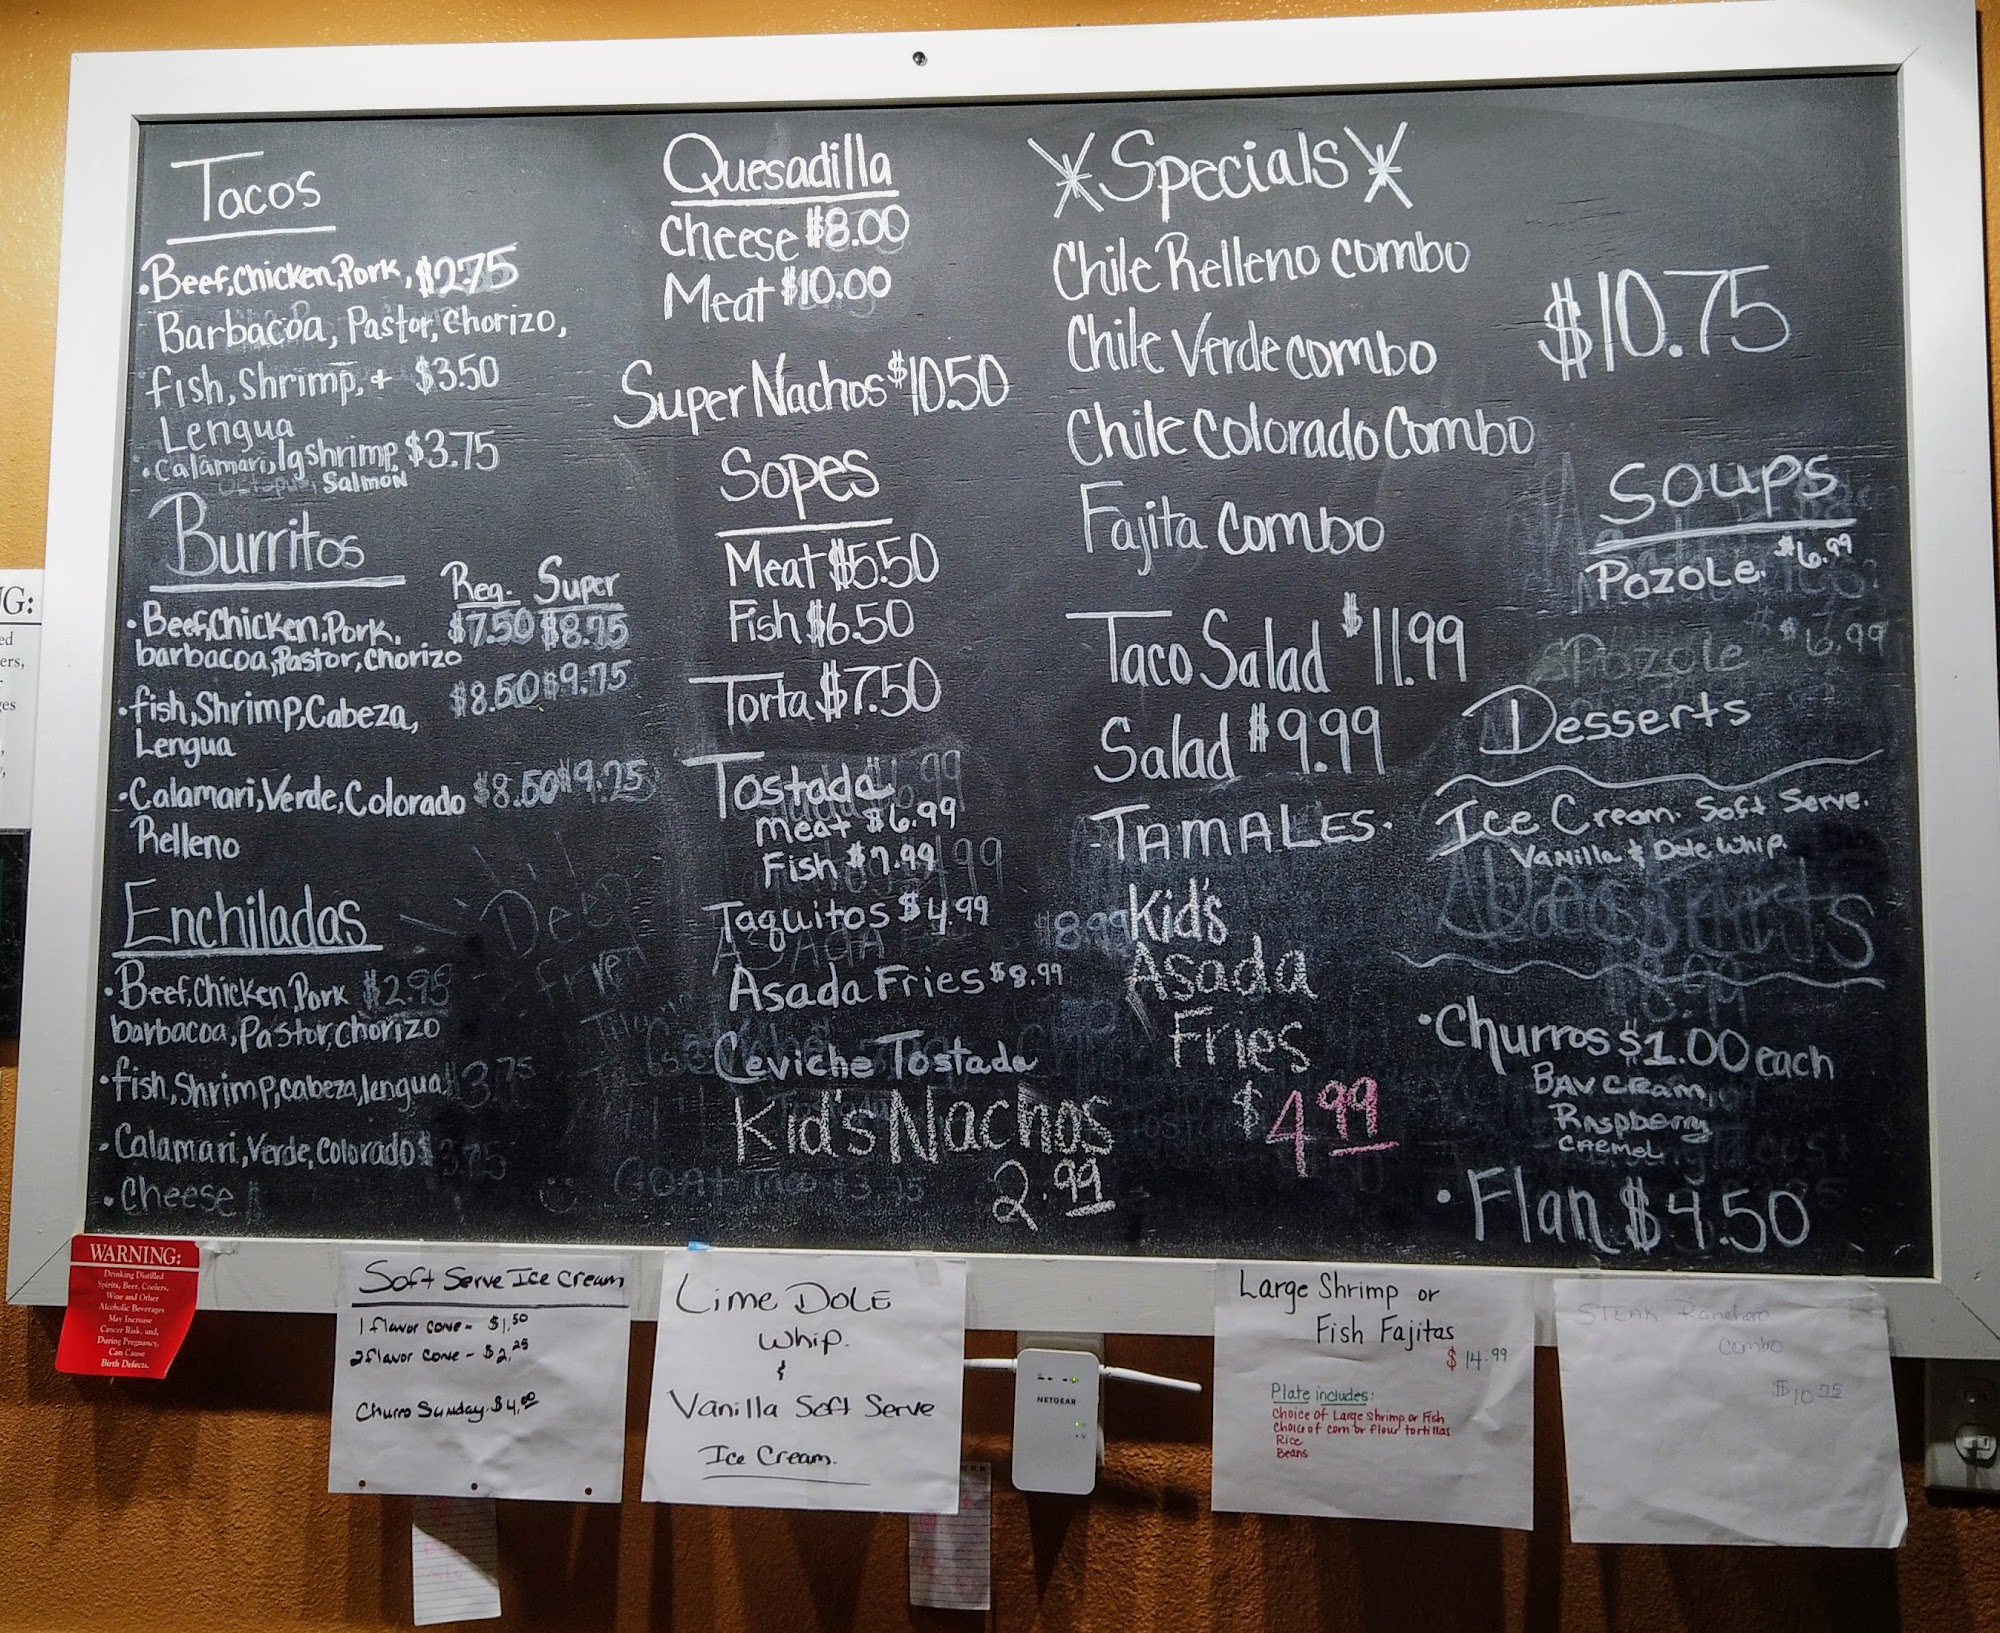 Tacos
•Beef,Chicken,Pork, $2.75
Barbacoa, Pastor, Chorizo,
fish, Shrimp, + $3.50
Lengua
•Calamari, lg shrimp $3.75
Octopus, Salmon
Burritos
Reg. Super
•Beef,Chicken,Pork, $7.50 $8.75
barbacoa, Pastor, Chorizo
•fish, Shrimp, Cabeza, $8.50 $9.75
Lengua
•Calamari, Verde, Colorado $8.50 $9.25
Relleno
Enchiladas
•Beef, Chicken Pork $2.95
barbacoa, Pastor, Chorizo
•fish, Shrimp, cabeza, lengua $3.75
•Calamari, Verde, Colorado $3.75
•Cheese
Quesadilla
Cheese $8.00
Meat $10.00
Super Nachos $10.50
Sopes
Meat $5.50
Fish $6.50
Torta $7.50
Tostada
Meat $6.99
Fish $7.99
Taquitos $4.99
Asada Fries $8.99
Ceviche Tostada
Kid's Nachos
2.99
Specials
Chile Relleno Combo
Chile Verde Combo
Chile Colorado Combo
Fajita Combo
$10.75
Taco Salad $11.99
Salad $9.99
-TAMALES-
Kid's
Asada
Fries
$4.99
Soups
Pozole $6.99
Pozole $6.99
Desserts
Ice Cream. Soft Serve.
Vanilla & Dole Whip
•Churros $1.00 each
BAV CREAM,
Raspberry
CREMEL
•Flan $4.50
WARNING:
Drinking Distilled
Spirits, Beer, Coolers,
Wine and Other
Alcoholic Beverages
May Increase
Cancer Risk, and,
During Pregnancy,
Can Cause
Birth Defects.
Soft Serve Ice Cream
1 flavor cone - $1.50
2 flavor cone - $2.25
Churro Sunday $4.00
Lime DOLE
Whip.
&
Vanilla Soft Serve
Ice Cream.
NETGEAR
Large Shrimp or
Fish Fajitas
$14.99
Plate includes:
Choice of Large Shrimp or Fish
Choice of corn or flour tortillas
Rice
Beans
STEAK Ranchero
combo
$10.75